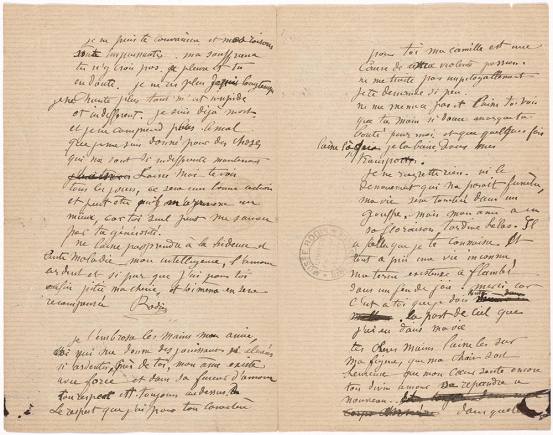 je ne puis te convaincre et mes raisons
sont impuissantes ma souffrance
tu n'y crois pas je pleure et tu
en doute. je ne ris plus depuis longtemps
je ne chante plus tout m'est insipide
et indifferent. je suis déjà mort
et je ne comprend plus le mal
que je me suis donné pour des choses
qui me sont si indifferente maintenant
Laisse moi te voir
tous les jours, ce sera une bonne action
et peut etre qu'il m'arrivera un
mieux, car toi seul peut me sauver
par ta générosité.
ne laisse pas prendre à la hideuse et
lente maladie mon intelligence, l'amour
ardent et si pur que j'ai pour toi
enfin pitié ma cherie, et toi même en sera
recompensée Rodin
je t'embrasse les mains mon amie,
toi qui me donne des jouissances si élevées
si ardentes, près de toi, mon ame existe
avec force et dans sa fureur d'amour
ton respect est toujours au dessus. 
Le respect que j'ai pour ton caractère
pour toi ma Camille est une
cause de violente passion.
ne me traite pas impitoyablement
je te demande si peu.
ne me menace pas et laisse toi voir
que ta main si douce marque ta
bonté pour moi et que quelques fois
laisse la que je la baise dans mes
transports.
je ne regrette rien. ni le
denouement qui me parait funèbre
ma vie sera tombée dans un
gouffre. mais mon ame a eu
sa floraison tardive hélas. Il
a fallu que je te connaisse et
tout a pris une vie inconnue
ma terne existence a flambé
dans un feu de joie. merci car
c'est à toi que je dois toute
la part de ciel que
j'ai eu dans ma vie
tes chères mains laisse les sur
ma figure, que ma chair soit
heureuse que mon cœur sente encore
ton divin amour se repandre a
nouveau.
dans quelle
MUSÉE RODIN